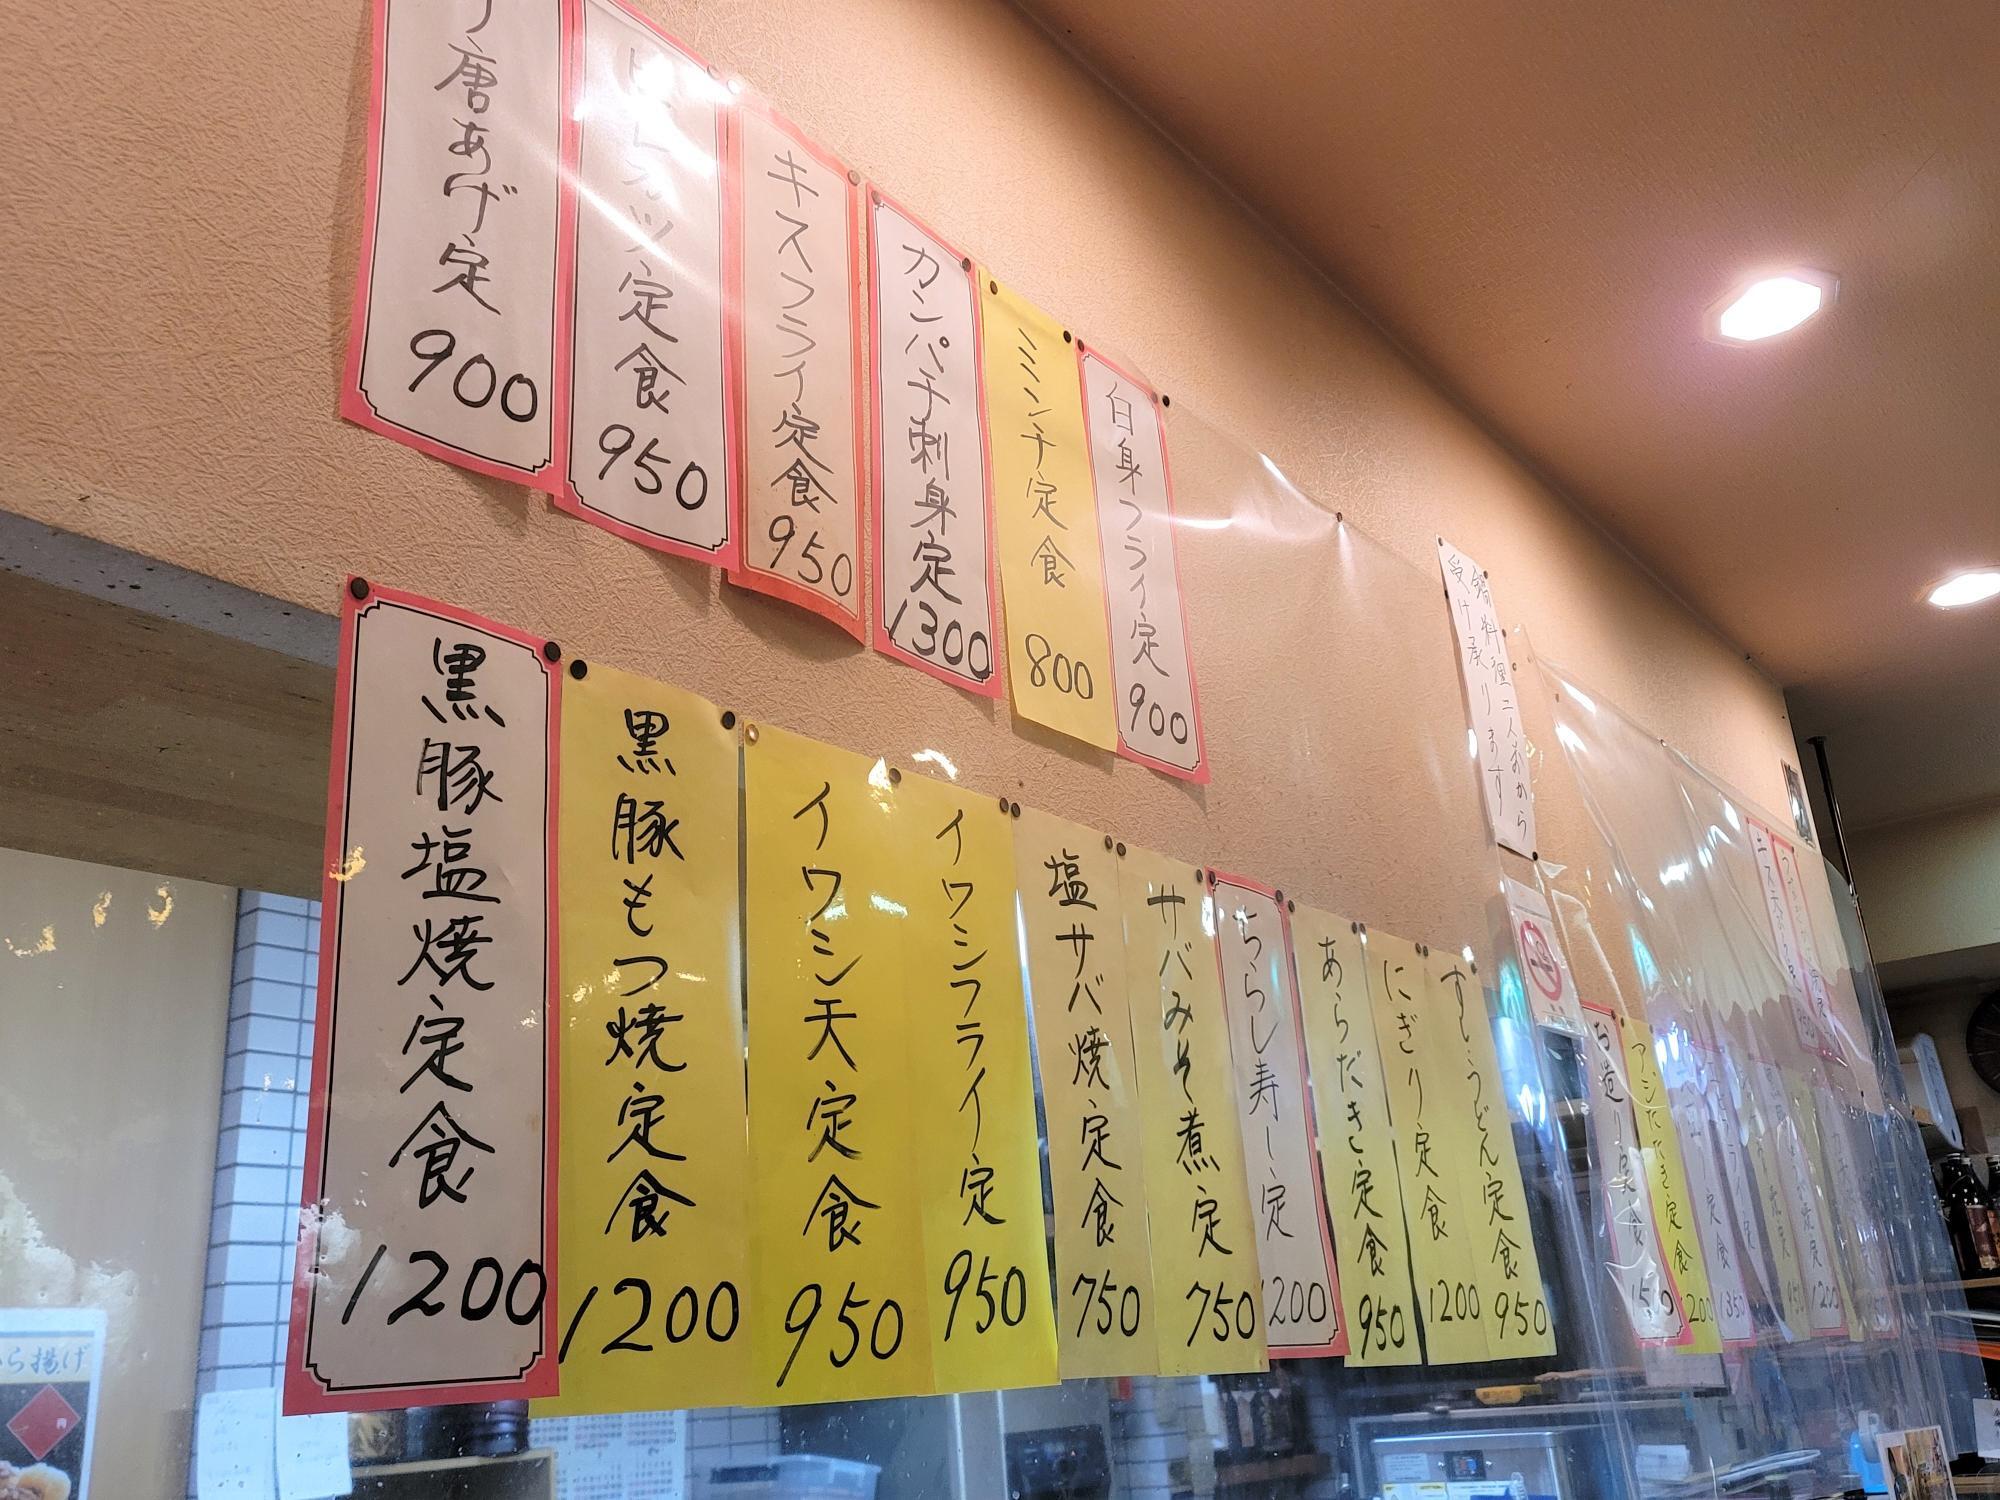 唐あげ定
900
ヒレカツ定食
950
キスフライ定食
950
カンパチ刺身定
1300
ミンチ定食
800
白身フライ定
900
鍋料理二人前から
受け承ります
黒豚塩焼定食
1200
黒豚もつ焼定食
1200
イワシ天定食
950
イワシフライ定
950
塩サバ焼定食
750
サバみそ煮定
750
ちらし寿し定
1200
あらだき定食
950
にぎり定食
1200
すし・うどん定食
950
お造り定食
アジたたき定食
1200
1350
から揚げ